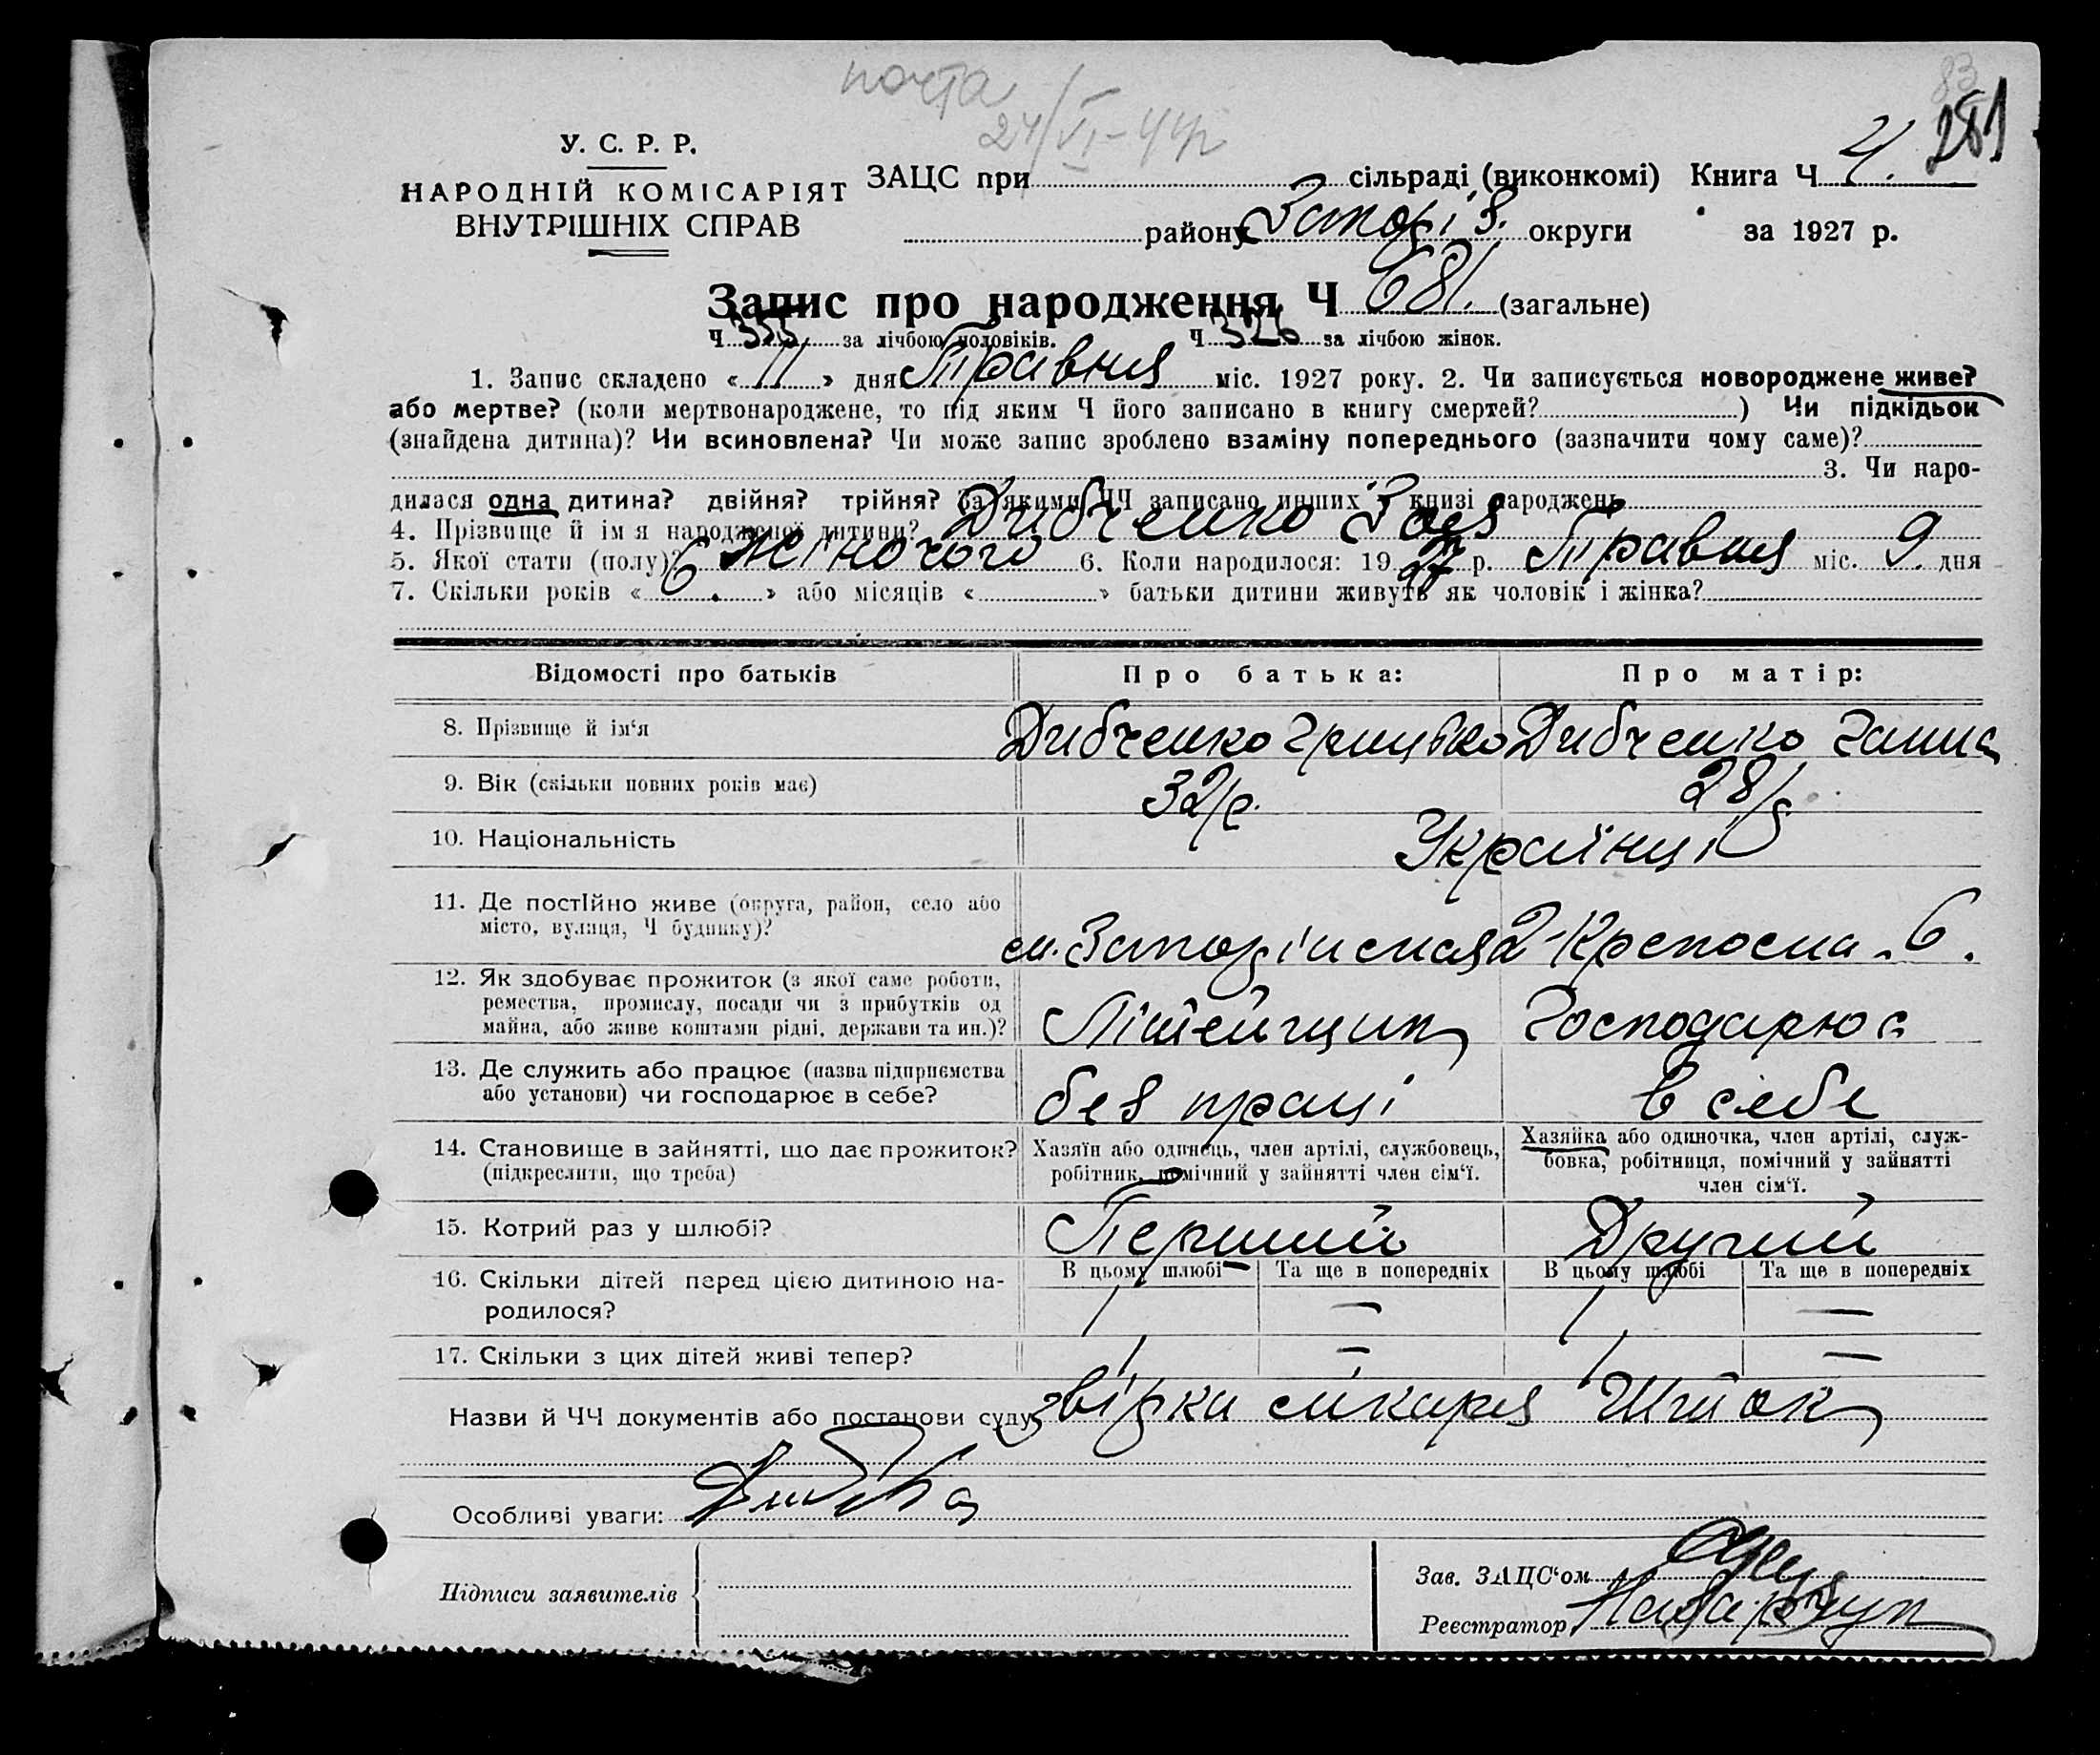 почта
24/VI-44р
83
281
У. С. Р. Р.
НАРОДНІЙ КОМІСАРІЯТ
ВНУТРІШНІХ СПРАВ
ЗАЦС при сільраді (виконкомі) Книга Ч 4.
району Запоріз. округи за 1927 р.
Запис про народження Ч 681. (загальне)
Ч 355 за лічбою чоловіків. Ч 326 за лічбою жінок.
1. Запис складено « 11 » дня Травня міс. 1927 року. 2. Чи записується новороджене живе?
або мертве? (коли мертвонароджене, то під яким Ч його записано в книгу смертей? ) Чи підкідьок
(знайдена дитина)? Чи всиновлена? Чи може запис зроблено взаміну попереднього (зазначити чому саме)?
3. Чи наро-
дилася одна дитина? двійня? трійня? За якими ЧЧ записано инших у книзі народжень
4. Прізвище й ім я народженої дитини? Дибченко Зоя
5. Якої стати (полу)? жіночого 6. Коли народилося: 19 27 р. Травня міс. 9. дня
7. Скільки років « 6. » або місяців « » батьки дитини живуть як чоловік і жінка?
Відомості про батьків Про батька: Про матір:
8. Прізвище й ім'я Дибченко Грицько Дибченко Ганна
9. Вік (скільки повних років має) 32/р. 28/р
10. Національність Українці
11. Де постійно живе (округа, район, село або
місто, вулиця, Ч будинку)? 2-Крепосна - 6.
12. Як здобуває прожиток (з якої саме роботи,
ремества, промислу, посади чи з прибутків од
майна, або живе коштами рідні, держави та ин.)? Літейщик Господарює
13. Де служить або працює (назва підприємства
або установи) чи господарює в себе? без праці в себе
14. Становище в зайнятті, що дає прожиток?
(підкреслити, що треба)
Хазяїн або одинець, член артілі, службовець,
робітник, помічний у зайнятті член сім'ї.
Хазяйка або одиночка, член артілі, служ-
бовка, робітниця, помічний у зайнятті
член сім'ї.
15. Котрий раз у шлюбі? Перший Другий
16. Скільки дітей перед цією дитиною на-
родилося?
В цьому шлюбі Та ще в попередніх В цьому шлюбі Та ще в попередніх
1 — 1 —
17. Скільки з цих дітей живі тепер? 1 — 1 —
Назви й ЧЧ документів або постанови суду
Особливі уваги:
Підписи заявителів
Зав. ЗАЦС'ом
Реєстратор